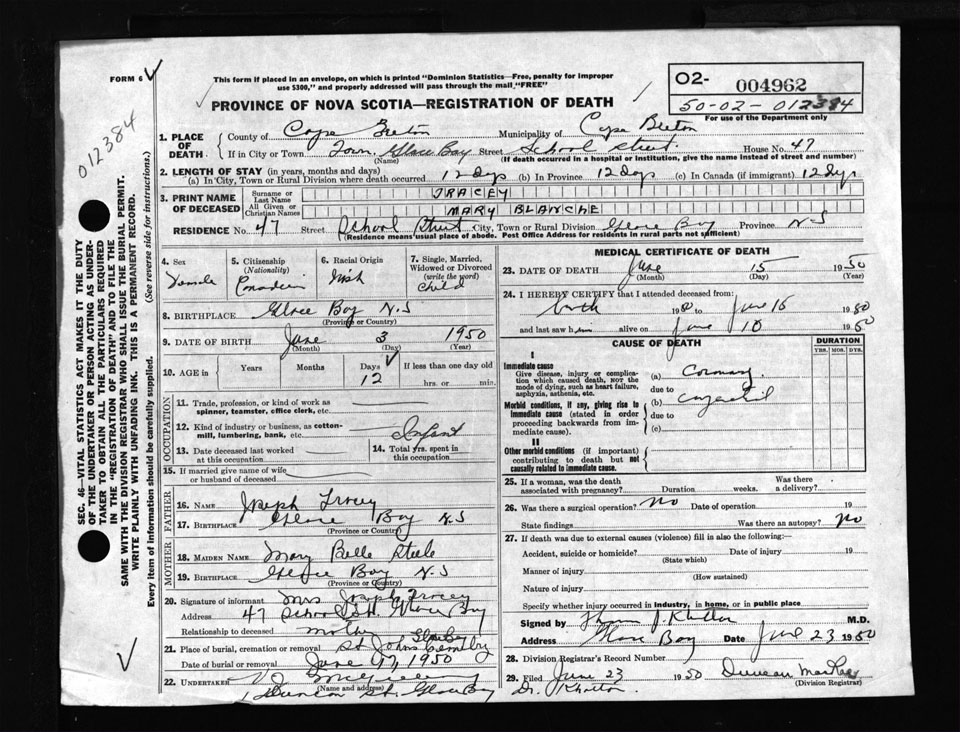 FORM 6
This form if placed in an envelope, on which is printed "Dominion Statistics—Free, penalty for improper
use $300," and properly addressed will pass through the mail "FREE"
PROVINCE OF NOVA SCOTIA—REGISTRATION OF DEATH
O2- 004962
50-02-012384
For use of the Department only
012384
SEC. 46—VITAL STATISTICS ACT MAKES IT THE DUTY
OF THE UNDERTAKER OR PERSON ACTING AS UNDER-
TAKER TO OBTAIN ALL THE PARTICULARS REQUIRED
IN THE "REGISTRATION OF DEATH" AND TO FILE THE
SAME WITH THE DIVISION REGISTRAR WHO SHALL ISSUE THE BURIAL PERMIT.
WRITE PLAINLY WITH UNFADING INK. THIS IS A PERMANENT RECORD.
Every item of information should be carefully supplied. (See reverse side for instructions.)
1. PLACE OF DEATH County of Cape Breton Municipality of Cape Breton
If in City or Town Town Glace Bay Street School Street House No. 47
(Name) (If death occurred in a hospital or institution, give the name instead of street and number)
2. LENGTH OF STAY (in years, months and days)
(a) In City, Town or Rural Division where death occurred 12 days (b) In Province 12 days (c) In Canada (if immigrant) 12 dys
3. PRINT NAME OF DECEASED
Surname or Last Name TRACEY
All Given or Christian Names MARY BLANCHE
RESIDENCE No. 47 Street School Street City, Town or Rural Division Glace Bay Province N-S
(Residence means usual place of abode. Post Office Address for residents in rural parts not sufficient)
4. Sex Female
5. Citizenship (Nationality) Canadian
6. Racial Origin Irish
7. Single, Married, Widowed or Divorced (write the word) Child
8. BIRTHPLACE Glace Bay N.S
(Province or Country)
9. DATE OF BIRTH June 3 1950
(Month) (Day) (Year)
10. AGE in Years Months Days 12 If less than one day old
hrs. or min.
OCCUPATION
11. Trade, profession, or kind of work as
spinner, teamster, office clerk, etc.
12. Kind of industry or business, as cotton-
mill, lumbering, bank, etc. Infant
13. Date deceased last worked at this occupation
14. Total yrs. spent in this occupation
15. If married give name of wife
or husband of deceased
FATHER
16. NAME Joseph Tracey
17. BIRTHPLACE Glace Bay N.S
(Province or Country)
MOTHER
18. MAIDEN NAME Mary Belle Steele
19. BIRTHPLACE Glace Bay N.S
(Province or Country)
20. Signature of informant Mrs Joseph Tracey
Address 47 School St. Glace Bay
Relationship to deceased mother
21. Place of burial, cremation or removal St Johns Cemetery Glace Bay
Date of burial or removal June 1950
22. UNDERTAKER
(Name and address) St. Glace Bay
MEDICAL CERTIFICATE OF DEATH
23. DATE OF DEATH June 15 1950
(Month) (Day) (Year)
24. I HEREBY CERTIFY that I attended deceased from:
birth 1950 to June 1950
and last saw h alive on June 1950
CAUSE OF DEATH
DURATION
YRS. MOS. DYS.
I
Immediate cause
Give disease, injury or complica-
tion which caused death, NOT the
mode of dying, such as heart failure,
asphyxia, asthenia, etc.
(a) Coronary
due to
Morbid conditions, if any, giving rise to
immediate cause (stated in order
proceeding backwards from im-
mediate cause).
(b) congenital
due to
(c)
II
Other morbid conditions (if important)
contributing to death but not
causally related to immediate cause.
25. If a woman, was the death
associated with pregnancy? Duration weeks. Was there a delivery?
26. Was there a surgical operation? no Date of operation 19
State findings Was there an autopsy? no
27. If death was due to external causes (violence) fill in also the following:—
Accident, suicide or homicide? Date of injury 19
(State which)
Manner of injury
(How sustained)
Nature of injury
Specify whether injury occurred in industry, in home, or in public place
Signed by M.D.
Address Glace Bay Date June 23 1950
28. Division Registrar's Record Number
29. Filed June 23 1950 Duncan
(Division Registrar)
Dr.